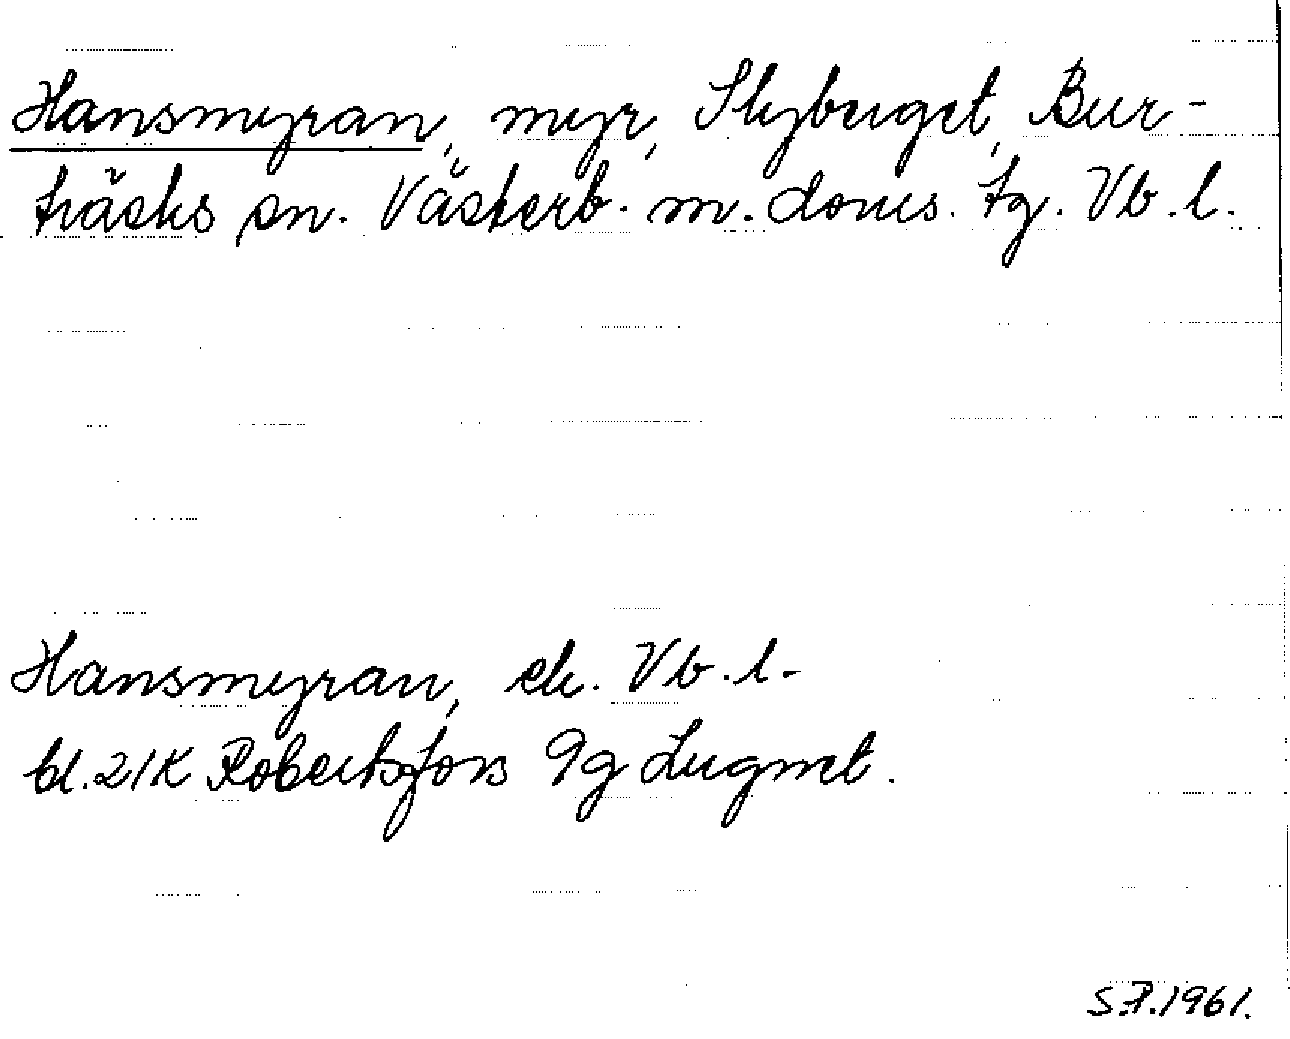 Hansmyran, myr, Slyberget, Bur-
träsks sn. Västerb. m. doms. tg. Vb. l.
Hansmyran, ek. Vb. l.
bl. 21K Robertsfors 9g Lugnet.
S.P. 1961.